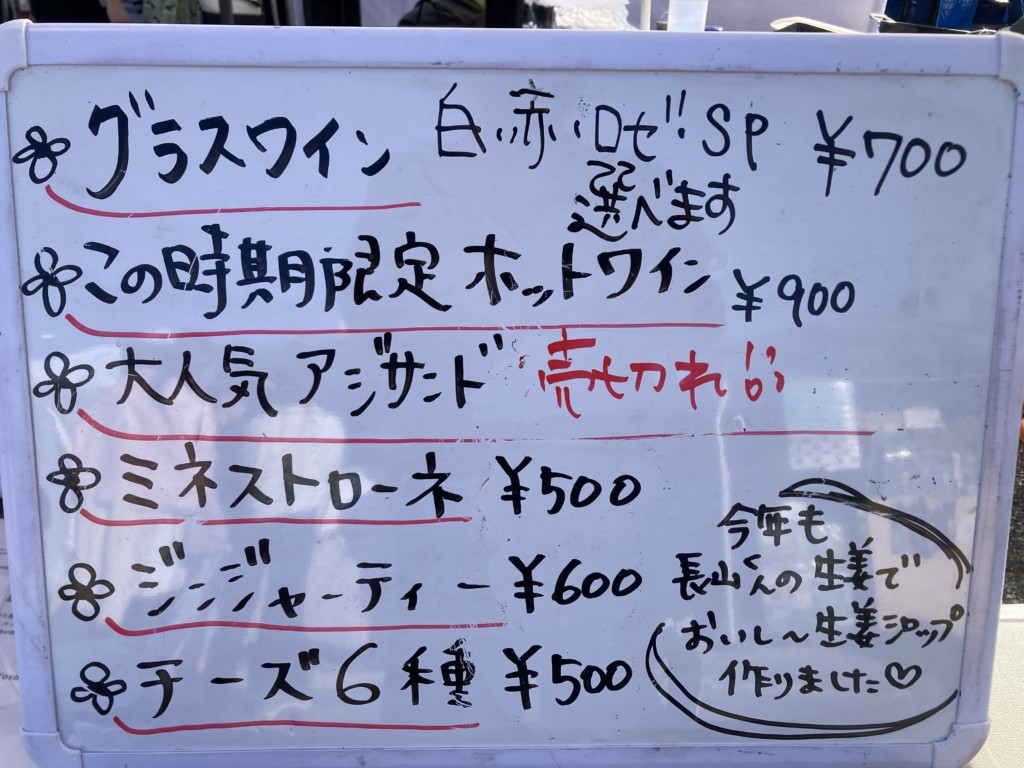 グラスワイン 白、赤、ロゼ、SP ¥700
選べます
この時期限定 ホットワイン ¥900
大人気 アジサンド 売切れ!!
ミネストローネ ¥500
ジンジャーティー ¥600
チーズ6種 ¥500
今年も
長山くんの生姜で
おいし〜生姜シロップ
作りました♡